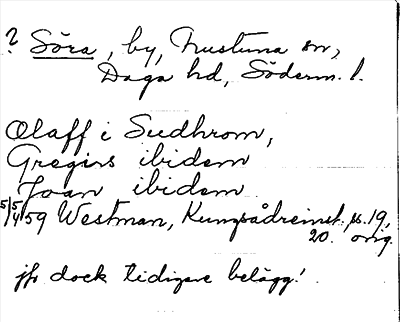 ? Söra, by, Frustuna sn,
Daga hd, Söderm. l.
Olaff i Sudhrom,
Gregers ibidem
Joan ibidem
5/5 59 Westman, Kungsådreinst. ps. 19,
20. orig.
jfr dock tidigare belägg!